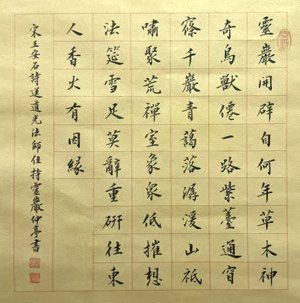 靈巖開辟自何年草木神
奇鳥獸僊一路紫薹通窅
窱千巖青藹落潺湲山祇
嘯聚荒禪室象衆低摧想
法筵雪足莫辭重研往東
人香火有因緣
宋王安石詩送道光法師住持靈巖仲亭書